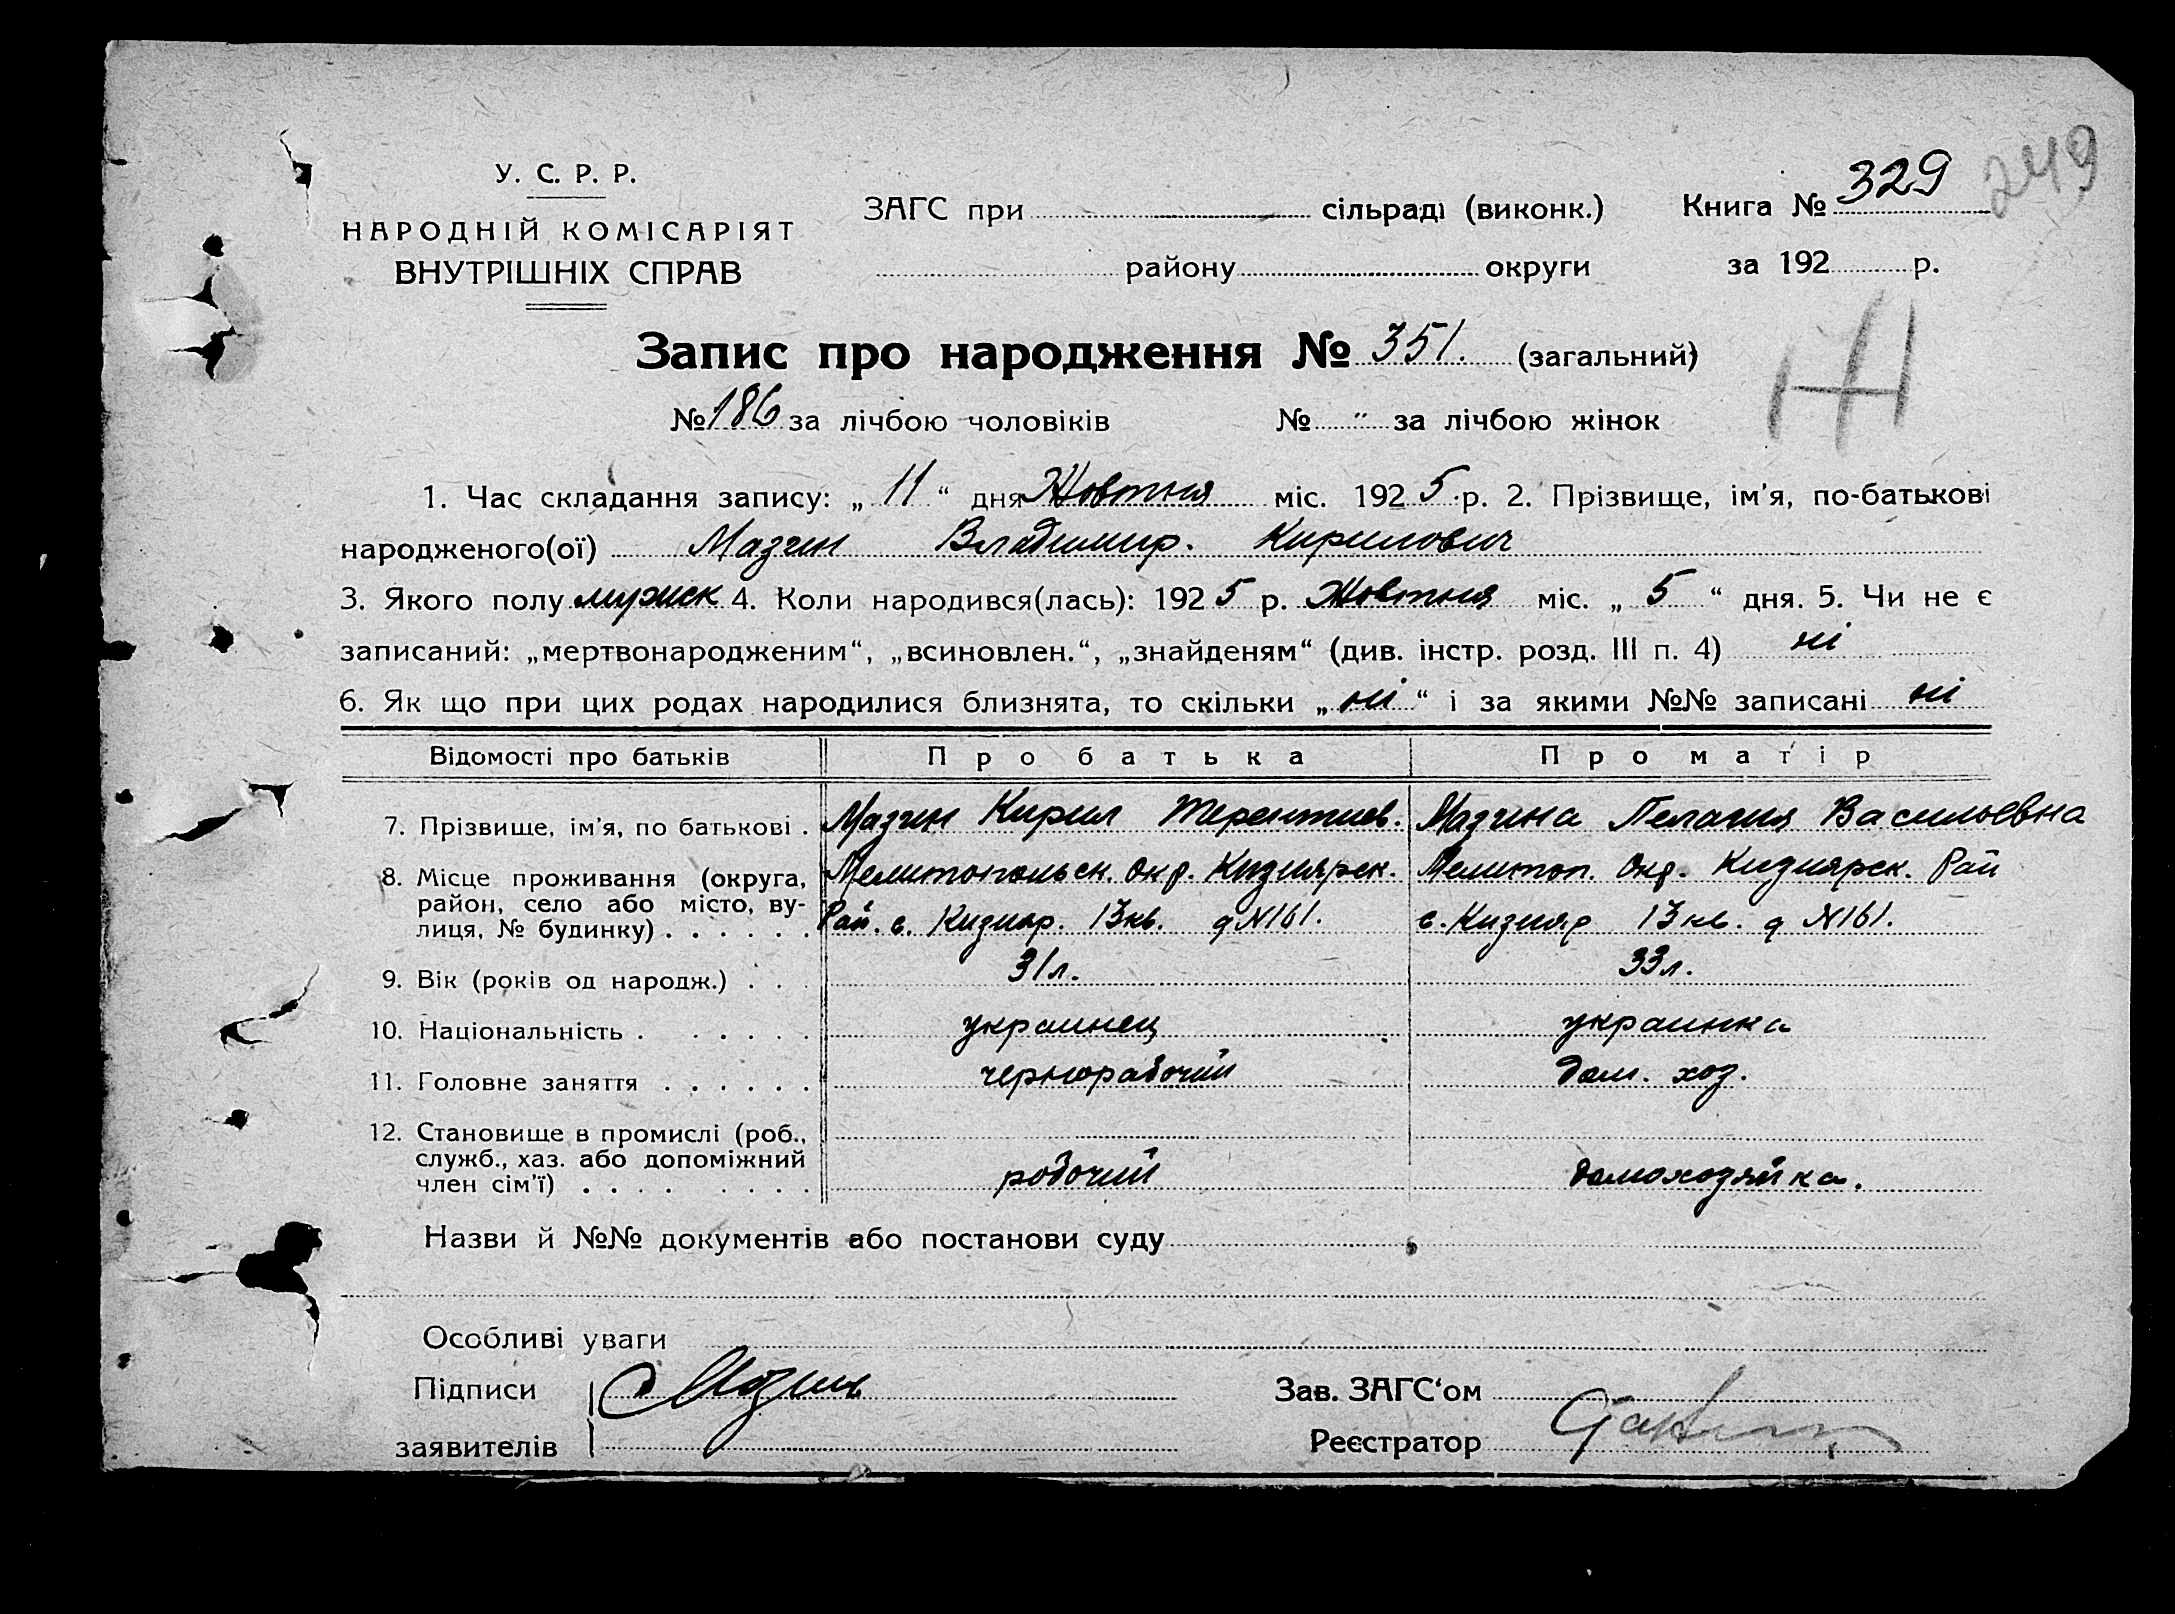 249
У. С. Р. Р.
НАРОДНІЙ КОМІСАРІЯТ
ВНУТРІШНІХ СПРАВ
ЗАГС при сільраді (виконк.) Книга № 329
району округи за 192 р.
Запис про народження № 351. (загальний)
№ 186 за лічбою чоловіків № " за лічбою жінок
1. Час складання запису: „ 11 “ дня Жовтня міс. 1925 р. 2. Прізвище, ім'я, по-батькові
народженого(ої) Мазин Владимир. Кирилович
3. Якого полу мужск 4. Коли народився(лась): 1925 р. Жовтня міс. „ 5 “ дня. 5. Чи не є
записаний: „мертвонародженим“, „всиновлен.“, „знайденям“ (див. інстр. розд. III п. 4) ні
6. Як що при цих родах народилися близнята, то скільки „ ні “ і за якими №№ записані ні
Відомості про батьків Про батька Про матір
7. Прізвище, ім'я, по батькові . Мазин Кирил Терентиев. Мазина Пелагия Васильевна
8. Місце проживання (округа, Мелитопольск. Окр. Кизиярск. Мелитоп. Окр. Кизиярск. Рай
район, село або місто, ву-
лиця, № будинку) . . . . . . Рай. с. Кизияр. 13 кв. д N161. с. Кизияр 13 кв. д N161.
9. Вік (років од народж.) . . . 31 л. 33 л.
10. Національність . . . . . . украинец украинка
11. Головне заняття . . . . . . чернорабочий дом. хоз.
12. Становище в промислі (роб.,
служб., хаз. або допоміжний
член сім'ї) . . . . . . . . робочий домохозяйка.
Назви й №№ документів або постанови суду
Особливі уваги
Підписи Мазин Зав. ЗАГС‘ом
заявителів Реєстратор